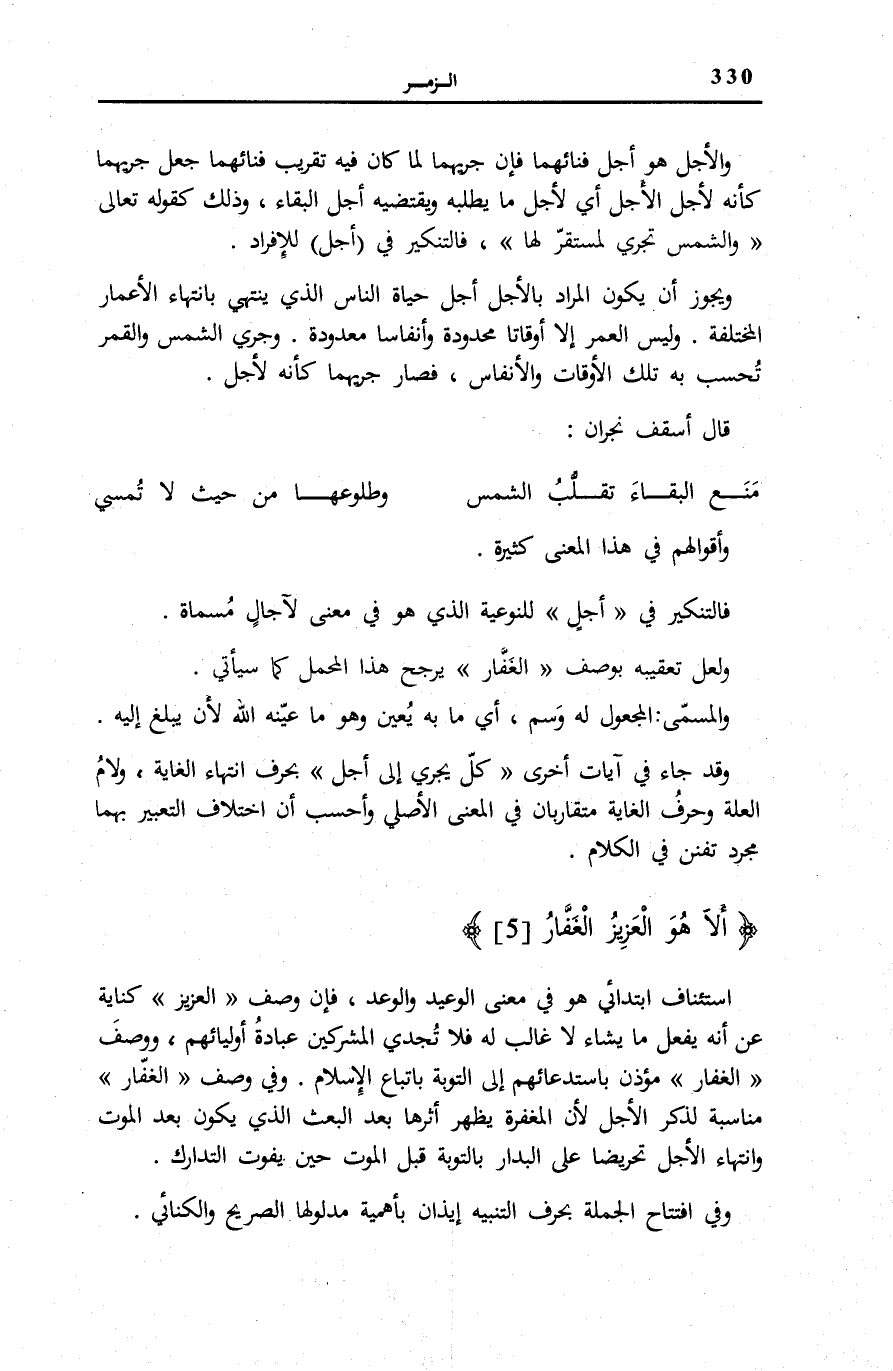 330
الـزمـر
والأجل هو أجل فنائهما فإن جريهما لما كان فيه تقريب فنائهما جعل جريهما
كأنه لأجل الأجل أي لأجل ما يطلبه ويقتضيه أجل البقاء ، وذلك كقوله تعالى
« والشمس تجري لمستقرّ لها » ، فالتنكير في (أجل) للإفراد .
ويجوز أن يكون المراد بالأجل أجل حياة الناس الذي ينتهي بانتهاء الأعمار
المختلفة . وليس العمر إلا أوقاتا محدودة وأنفاسا معدودة . وجري الشمس والقمر
تُحسب به تلك الأوقات والأنفاس ، فصار جريهما كأنه لأجل .
قال أسقف نجران :
مَنَـع البقـاءَ تقـلُّبُ الشمس وطلوعهـا من حيث لا تُمسي
وأقوالهم في هذا المعنى كثيرة .
فالتنكير في « أجلٍ » للنوعية الذي هو في معنى لآجالٍ مُسماة .
ولعل تعقيبه بوصف « الغَفَّار » يرجح هذا المحمل كما سيأتي .
والمسمّى:المجعول له وَسم ، أي ما به يُعين وهو ما عيّنه الله لأن يبلغ إليه .
وقد جاء في آيات أخرى « كلّ يجري إلى أجل » بحرف انتهاء الغاية ، ولامُ
العلة وحرفُ الغاية متقاربان في المعنى الأصلي وأحسب أن اختلاف التعبير بهما
مجرد تفنن في الكلام .
﴿ أَلاَ هُوَ الْعَزِيزُ الْغَفَّارُ [5] ﴾
استئناف ابتدائي هو في معنى الوعيد والوعد ، فإن وصف « العزيز » كناية
عن أنه يفعل ما يشاء لا غالب له فلا تُجدي المشركين عبادةُ أوليائهم ، ووصفَ
« الغفار » مؤذن باستدعائهم إلى التوبة باتباع الإسلام . وفي وصف « الغفّار »
مناسبة لذكر الأجل لأن المغفرة يظهر أثرها بعد البعث الذي يكون بعد الموت
وانتهاء الأجل تحريضا على البدار بالتوبة قبل الموت حين يفوت التدارك .
وفي افتتاح الجملة بحرف التنبيه إيذان بأهمية مدلولها الصريح والكنائي .